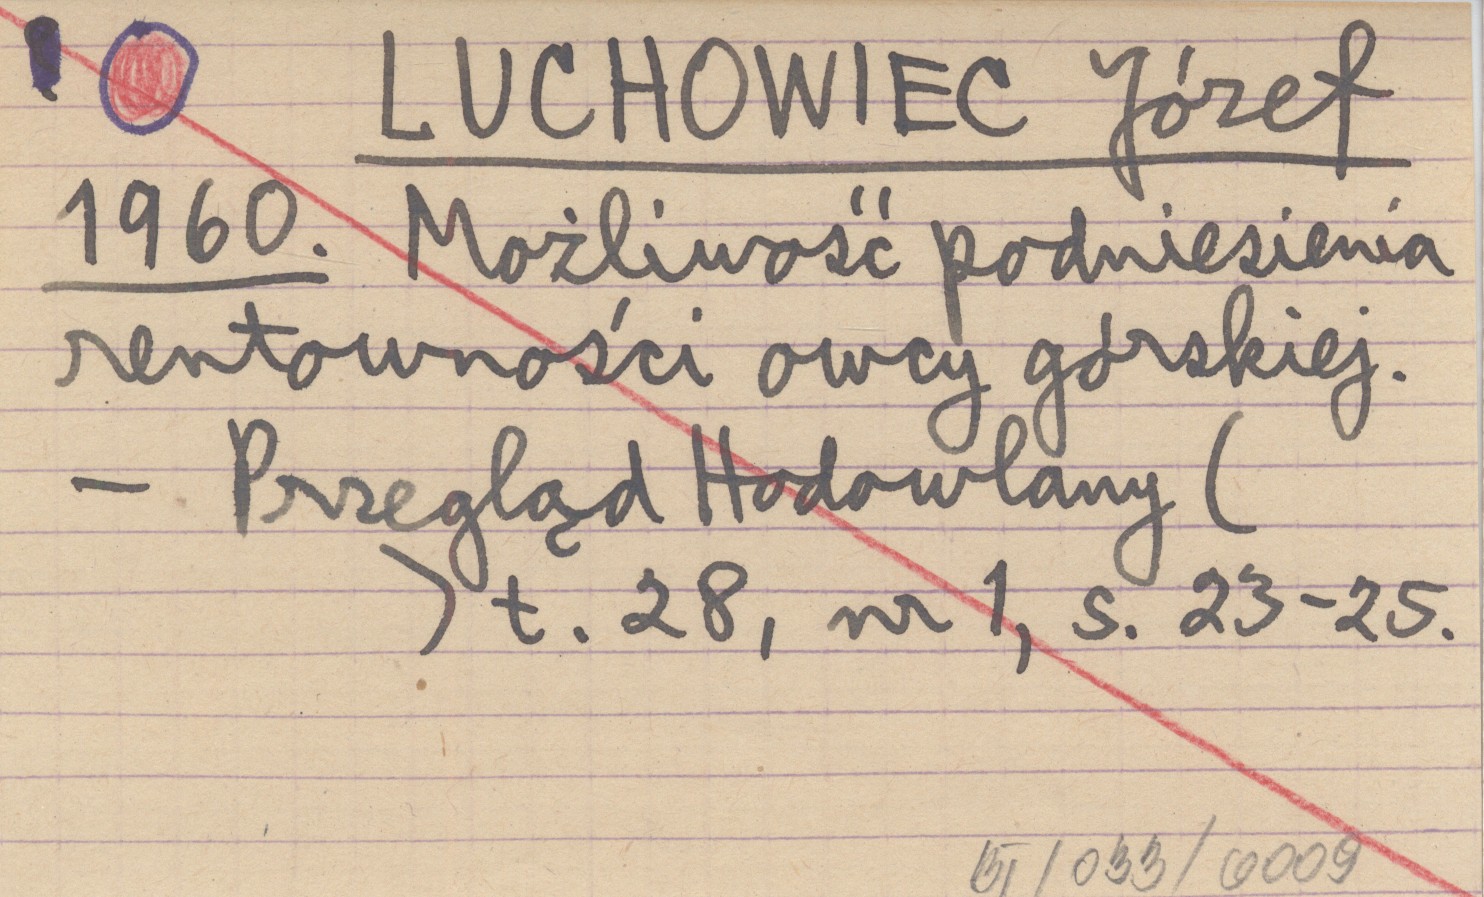 LUCHOWIEC Józef
1960. Możliwość podniesienia
rentowności owcy górskiej.
— Przegląd Hodowlany (
) t. 28, nr 1, s. 23-25.
/ 033 / 0009